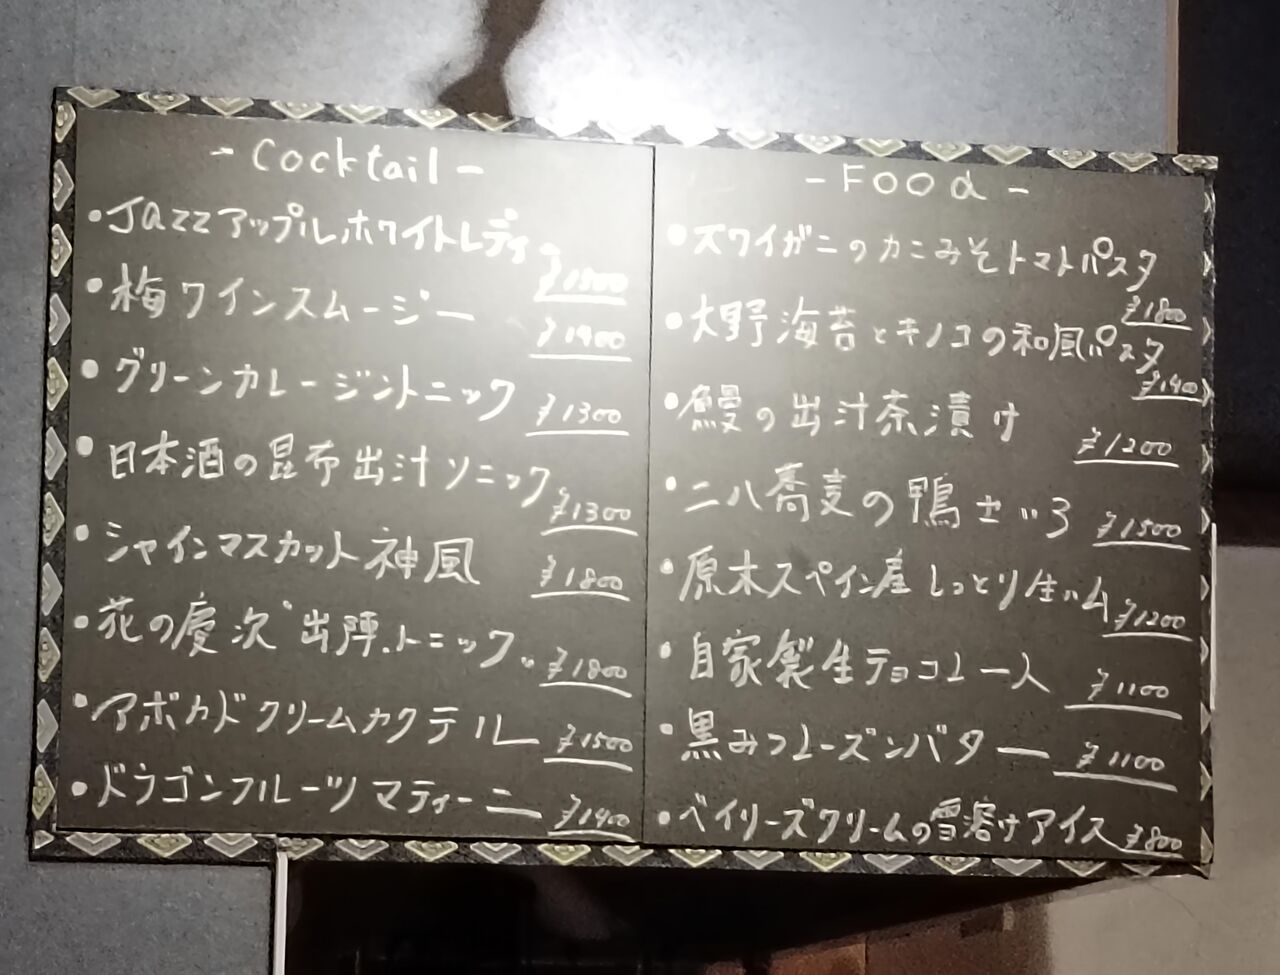 - Cocktail -
・Jazzアップルホワイトレディ
・梅ワインスムージー
¥1400
・グリーンカレージントニック ¥1300
・日本酒の昆布出汁ソニック ¥1300
・シャインマスカット神風 ¥1800
・花の慶次"出陣.トニック" ¥1800
・アボカドクリームカクテル ¥1500
・ドラゴンフルーツマティーニ ¥1400
- FOOd -
・ズワイガニのカニみそトマトパスタ
¥1800
・大野海苔とキノコの和風パスタ
¥1400
・鰻の出汁茶漬け ¥1200
・二八蕎麦の鴨せいろ ¥1500
・原木スペイン産しっとり生ハム ¥1200
・自家製生チョコレート ¥1100
・黒みつレーズンバター ¥1100
・ベイリーズクリームの雪溶けアイス ¥800